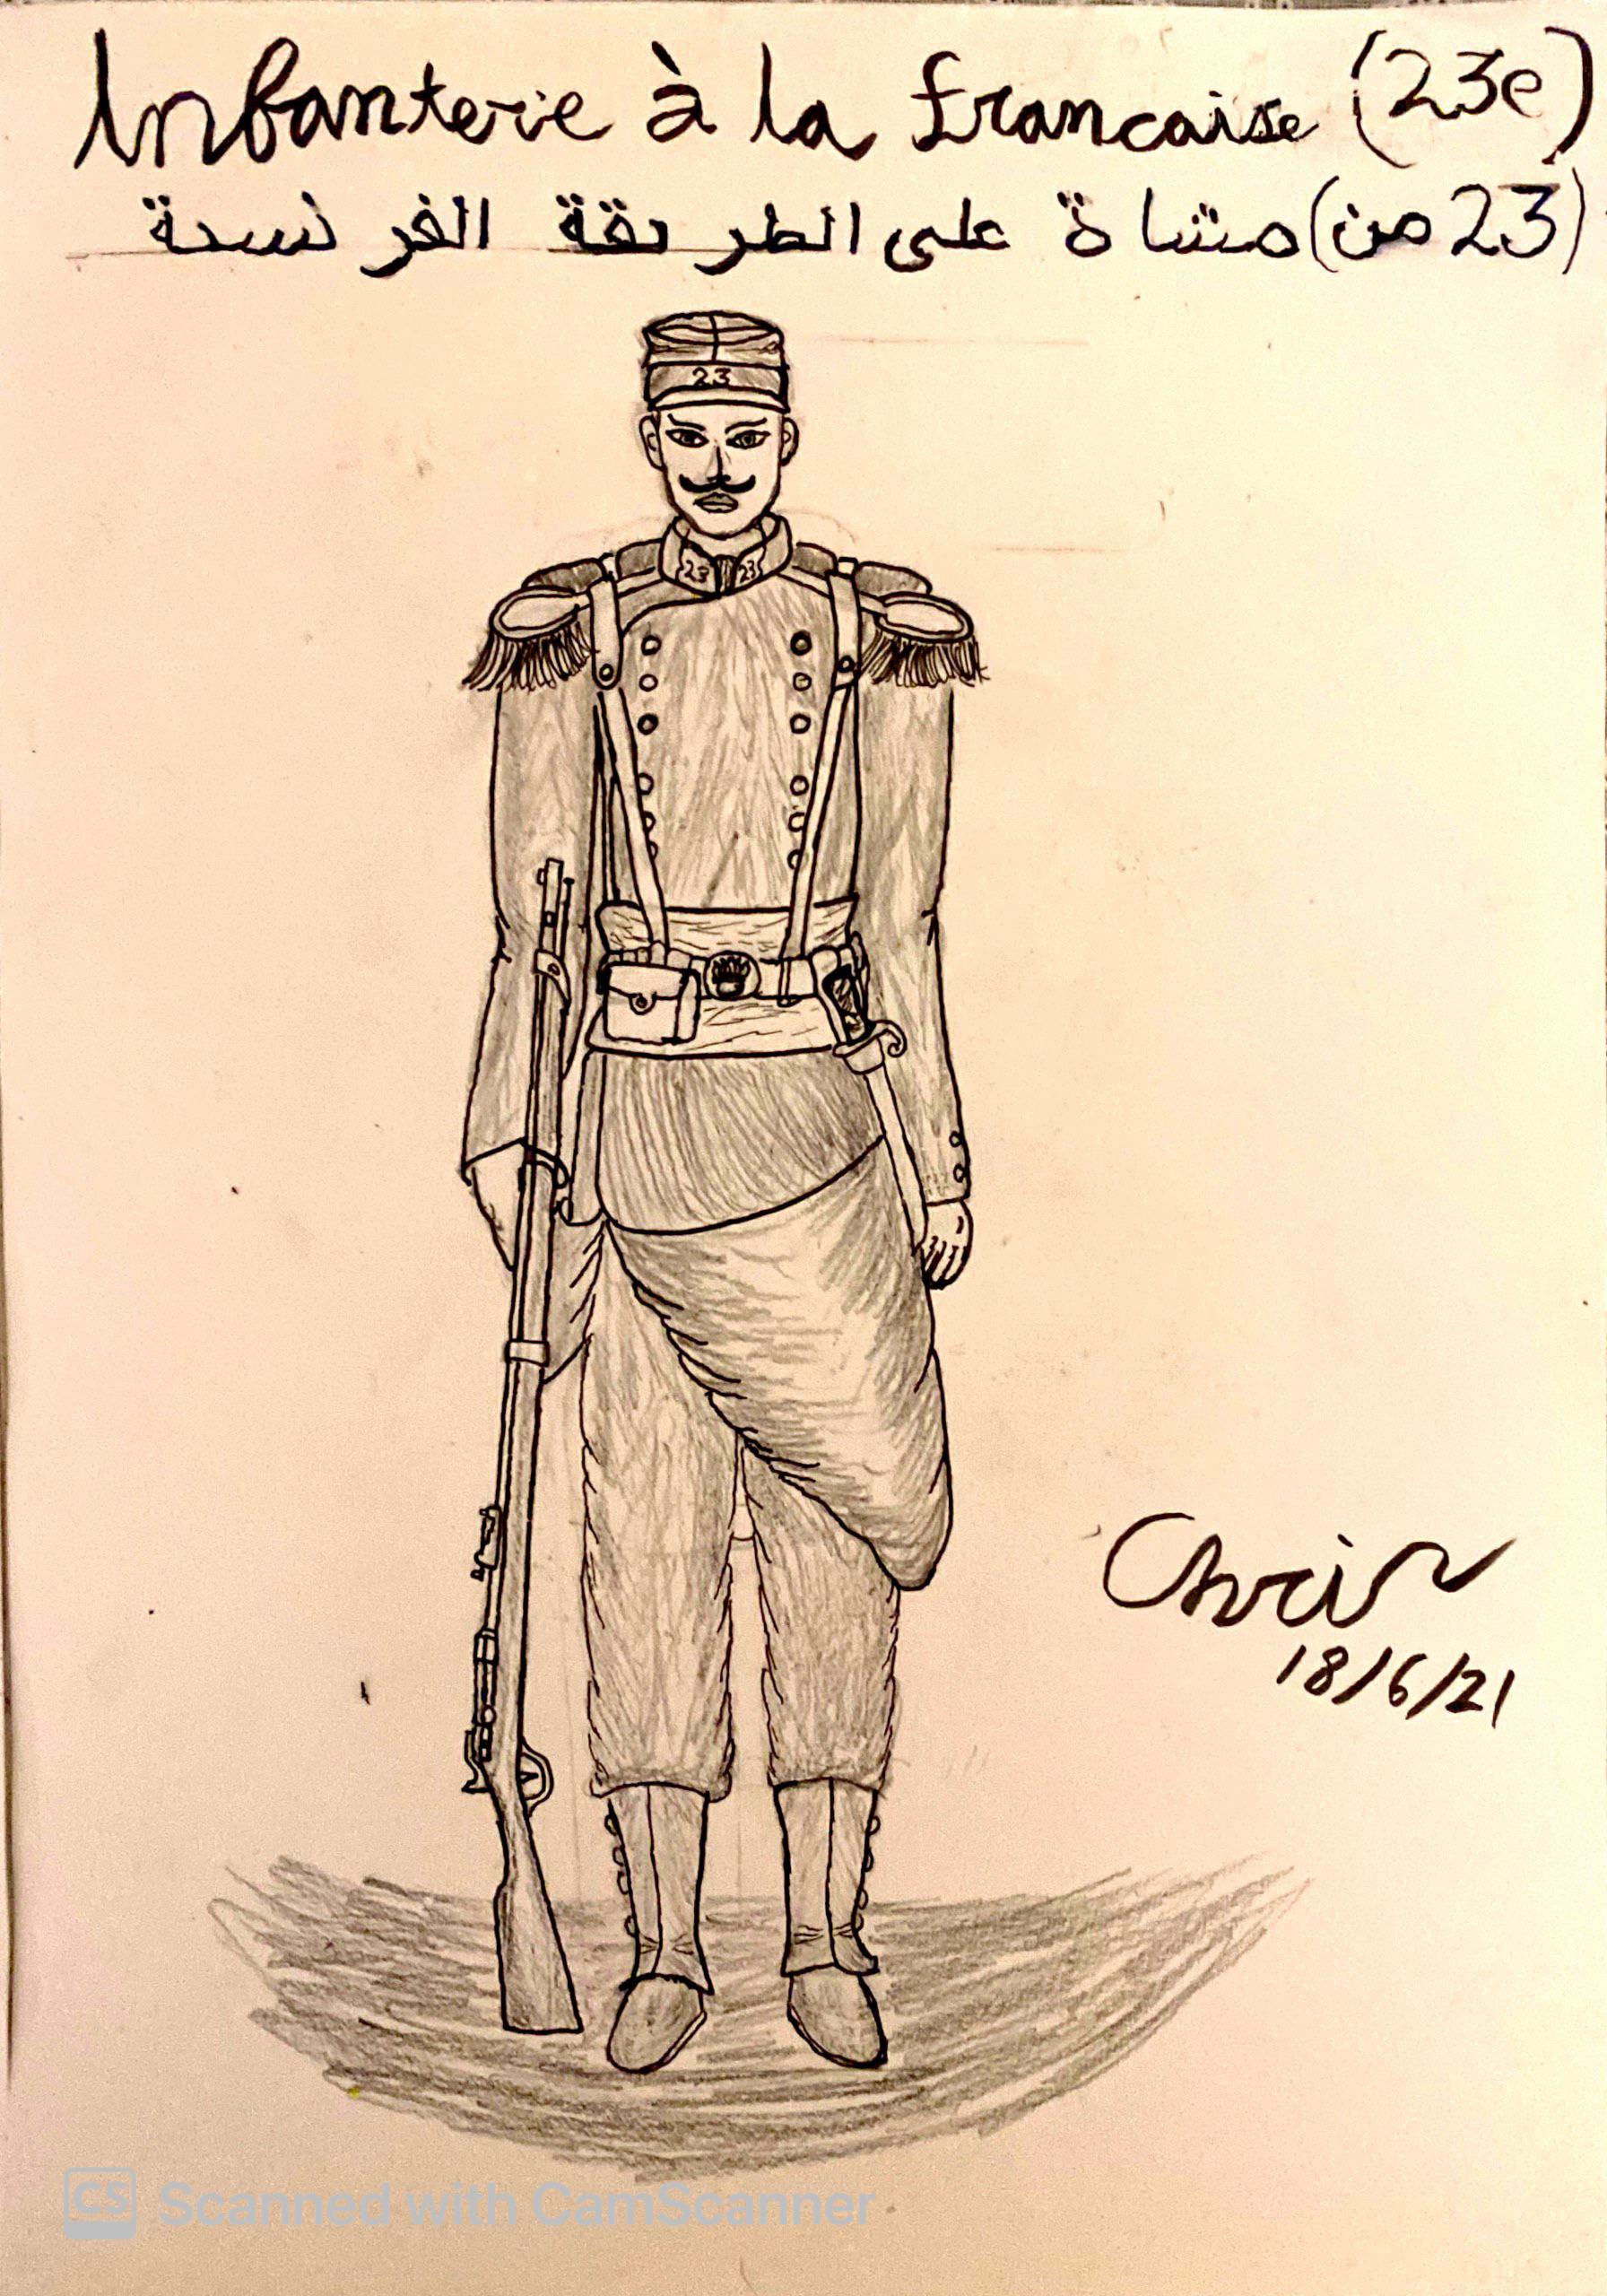 Infanterie à la francaise (23e)
(23 من) مشاة على الطريقة الفرنسية
23
23 23
Chris
18/6/21
CS Scanned with CamScanner